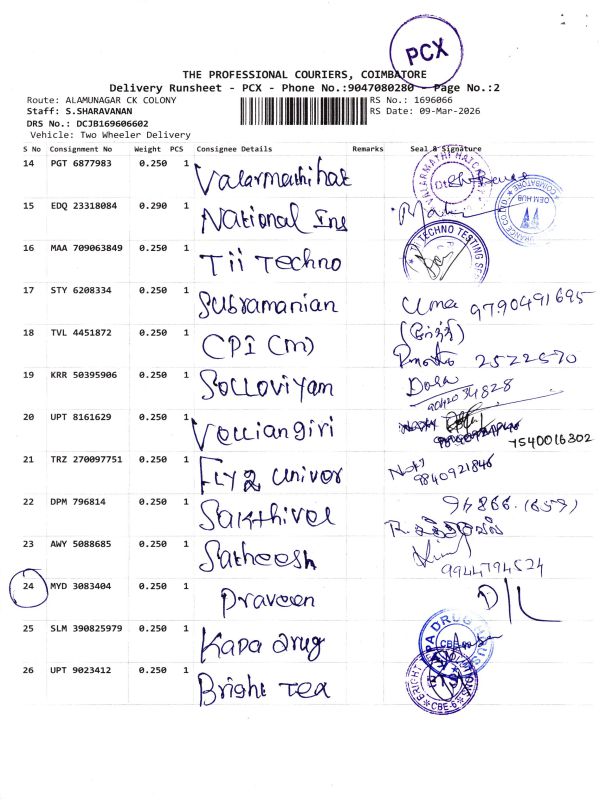 PCX
THE PROFESSIONAL COURIERS, COIMBATORE
Delivery Runsheet - PCX - Phone No.:9047080280 - Page No.:2
Route: ALAMUNAGAR CK COLONY RS No.: 1696066
Staff: S.SHARAVANAN RS Date: 09-Mar-2026
DRS No.: DCJB169606602
Vehicle: Two Wheeler Delivery
S No Consignment No Weight PCS Consignee Details Remarks Seal & Signature
14 PGT 6877983 0.250 1 Valarmathi hat
15 EDQ 23318084 0.290 1 National Ins
16 MAA 709063849 0.250 1 Tii Techno
17 STY 6208334 0.250 1 Subramanian Uma 9790491695
18 TVL 4451872 0.250 1 CPI (m) 2522570
19 KRR 50395906 0.250 1 Solloviyam 9042034828
20 UPT 8161629 0.250 1 Velliangiri 7540016302
21 TRZ 270097751 0.250 1 Fly 2 univer 9840921846
22 DPM 796814 0.250 1 Sakthivel 94866
23 AWY 5088685 0.250 1 Satheesh 9944794524
24 MYD 3083404 0.250 1 Praveen D/L
25 SLM 390825979 0.250 1 Kapa drug
26 UPT 9023412 0.250 1 Bright Tea